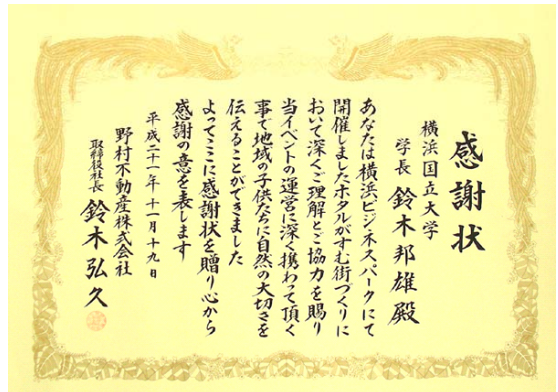 感謝状
横浜国立大学
学長 鈴木邦雄殿
あなたは横浜ビジネスパークにて
開催しましたホタルがすむ街づくりに
おいて深くご理解とご協力を賜り
当イベントの運営に深く携わって頂く
事で地域の子供たちに自然の大切さを
伝えることができました
よってここに感謝状を贈り心から
感謝の意を表します
平成二十一年十一月十九日
野村不動産株式会社
取締役社長 鈴木弘久